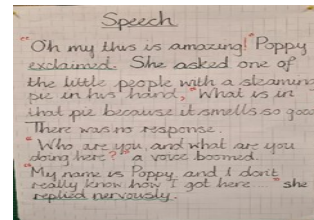 Speech
"Oh my this is amazing!" Poppy
exclaimed. She asked one of
the little people with a steaming
pie in his hand, "What is in
that pie because it smells so good
There was no response.
"Who are you and what are you
doing here?" a voice boomed.
"My name is Poppy and I don't
really know how I got here...." she
replied nervously.